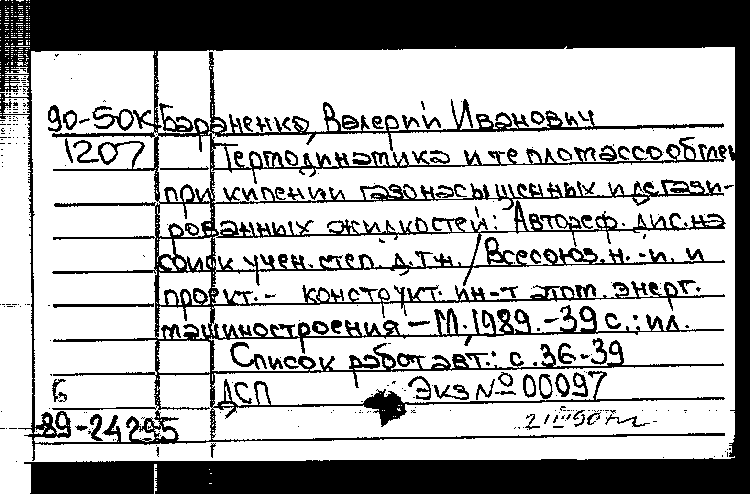 90-50К Бараненко, Валерий Иванович
1207 Термодинамика и тепломассообмен
при кипении газонасыщенных и дегази-
рованных жидкостей: Автореф. дис. на
соиск. учен. степ. д.т.н. / Всесоюз. н.-и. и
проект.- конструкт. ин-т атом. энерг.
машиностроения – М., 1989. – 39 с.: ил.
Список работ авт.: с. 36-39
Б ДСП Экз № 00097
89-24295